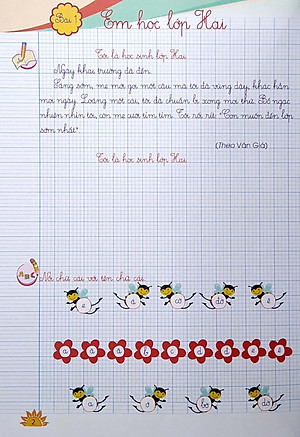 Bài 1
Em học lớp Hai
Tôi là học sinh lớp Hai
Ngày khai trường đã đến.
Sáng sớm, mẹ mới gọi một câu mà tôi đã vùng dậy, khác hẳn
mọi ngày. Loáng một cái, tôi đã chuẩn bị xong mọi thứ. Bố ngạc
nhiên nhìn tôi, còn mẹ cười tủm tỉm. Tôi rối rít: "Con muốn đến lớp
sớm nhất".
(Theo Văn Giá)
Tôi là học sinh lớp Hai
Nối chữ cái với tên chữ cái.
a ă â b c d đ e ê
2